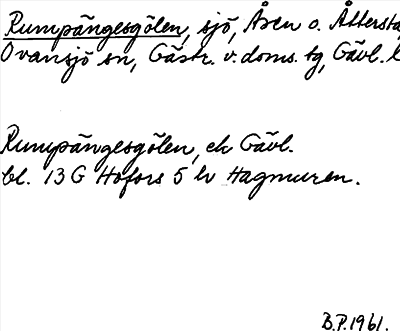 Rumpängesgölen, sjö, Åsen o. Åttersta,
Ovansjö sn, Gästr. v. doms. tg, Gävl. l
Rumpängesgölen, ek Gävl.
bl. 13 G Hofors 5 lv Hagmuren.
B.P. 1961.